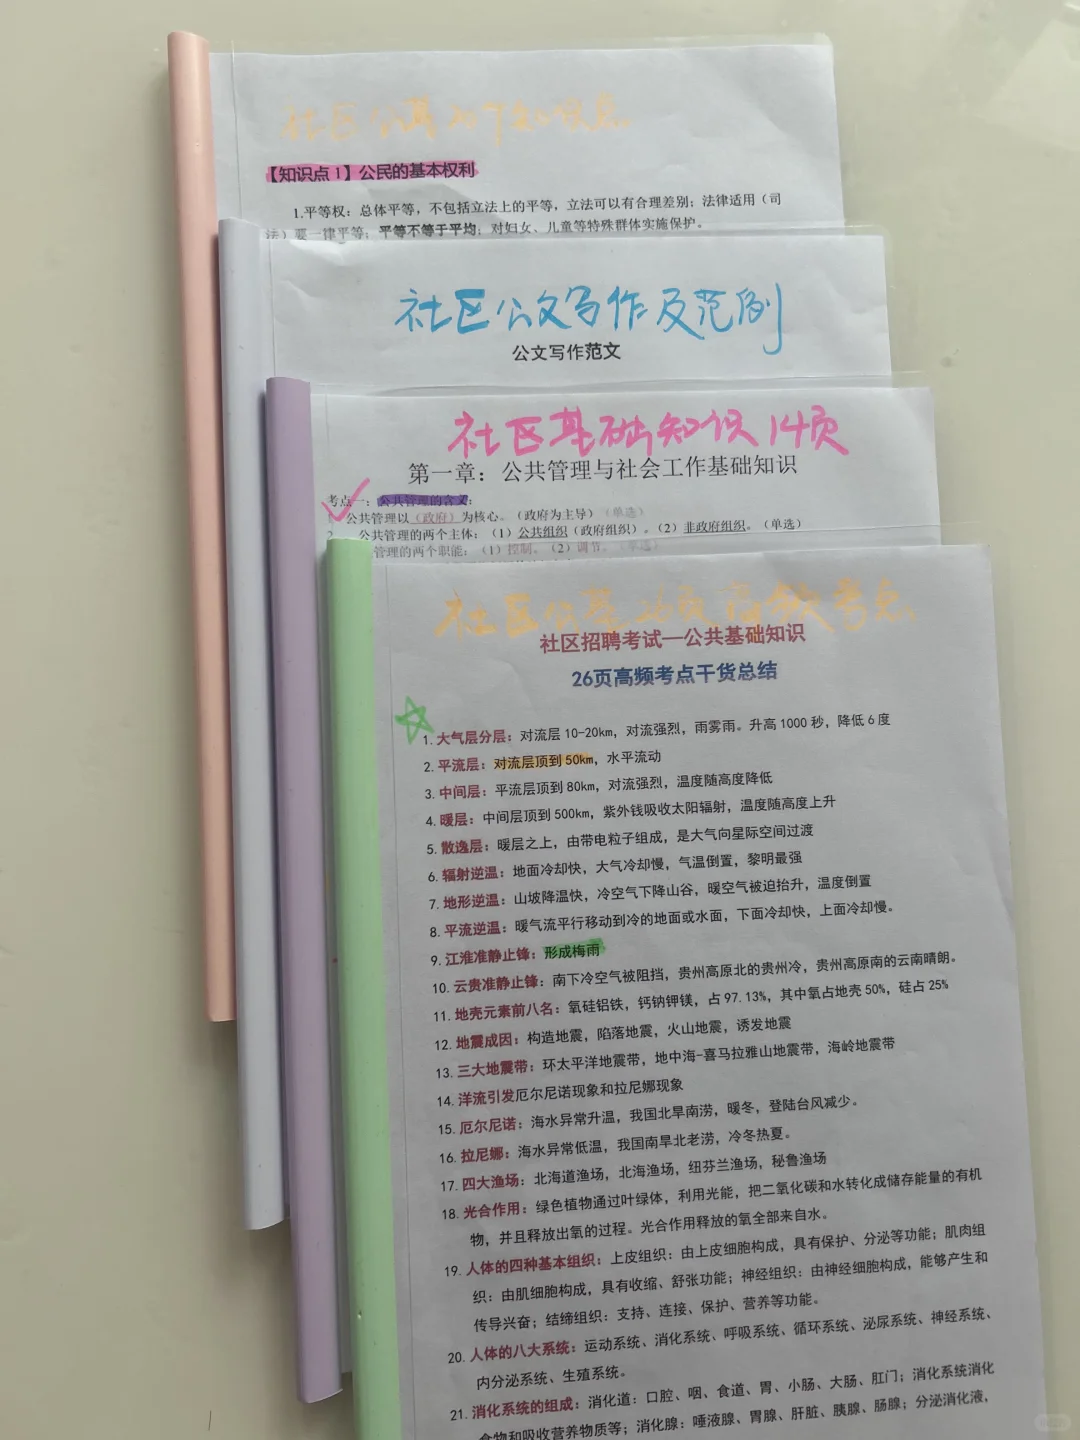 社区公基207知识点
【知识点1】公民的基本权利
1.平等权：总体平等，不包括立法上的平等，立法可以有合理差别；法律适用（司
法）要一律平等；平等不等于平均；对妇女、儿童等特殊群体实施保护。
社区公文写作及范例
公文写作范文
社区基础知识14页
第一章：公共管理与社会工作基础知识
考点一：公共管理的含义：
1. 公共管理以（政府）为核心。（政府为主导）（单选）
2. 公共管理的两个主体：（1）公共组织（政府组织）。（2）非政府组织。（单选）
管理的两个职能：（1）控制。（2）调节。（单选）
社区公基26页高频考点
社区招聘考试—公共基础知识
26页高频考点干货总结
1. 大气层分层：对流层10-20km，对流强烈，雨雾雨。升高1000秒，降低6度
2. 平流层：对流层顶到50km，水平流动
3. 中间层：平流层顶到80km，对流强烈，温度随高度降低
4. 暖层：中间层顶到500km，紫外钱吸收太阳辐射，温度随高度上升
5. 散逸层：暖层之上，由带电粒子组成，是大气向星际空间过渡
6. 辐射逆温：地面冷却快，大气冷却慢，气温倒置，黎明最强
7. 地形逆温：山坡降温快，冷空气下降山谷，暖空气被迫抬升，温度倒置
8. 平流逆温：暖气流平行移动到冷的地面或水面，下面冷却快，上面冷却慢。
9. 江淮准静止锋：形成梅雨
10. 云贵准静止锋：南下冷空气被阻挡，贵州高原北的贵州冷，贵州高原南的云南晴朗。
11. 地壳元素前八名：氧硅铝铁，钙钠钾镁，占97.13%，其中氧占地壳50%，硅占25%
12. 地震成因：构造地震，陷落地震，火山地震，诱发地震
13. 三大地震带：环太平洋地震带，地中海-喜马拉雅山地震带，海岭地震带
14. 洋流引发厄尔尼诺现象和拉尼娜现象
15. 厄尔尼诺：海水异常升温，我国北旱南涝，暖冬，登陆台风减少。
16. 拉尼娜：海水异常低温，我国南旱北老涝，冷冬热夏。
17. 四大渔场：北海道渔场，北海渔场，纽芬兰渔场，秘鲁渔场
18. 光合作用：绿色植物通过叶绿体，利用光能，把二氧化碳和水转化成储存能量的有机
物，并且释放出氧的过程。光合作用释放的氧全部来自水。
19. 人体的四种基本组织：上皮组织：由上皮细胞构成，具有保护、分泌等功能；肌肉组
织：由肌细胞构成，具有收缩、舒张功能；神经组织：由神经细胞构成，能够产生和
传导兴奋；结缔组织：支持、连接、保护、营养等功能。
20. 人体的八大系统：运动系统、消化系统、呼吸系统、循环系统、泌尿系统、神经系统、
内分泌系统、生殖系统。
21. 消化系统的组成：消化道：口腔、咽、食道、胃、小肠、大肠、肛门；消化系统消化
食物和吸收营养物质等；消化腺：唾液腺、胃腺、肝脏、胰腺、肠腺；分泌消化液，